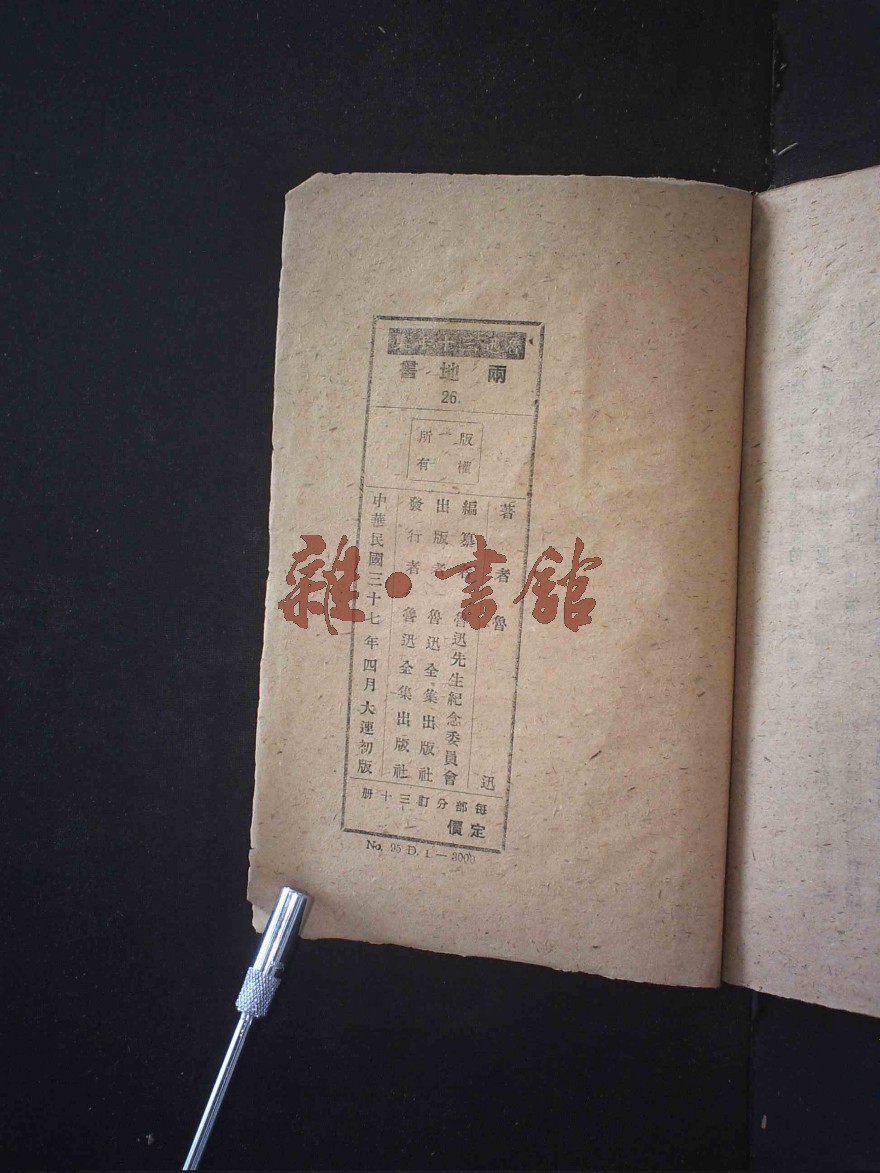 魯迅三十年集
兩地書
26
版權所有
著者 魯迅
編纂者 魯迅先生紀念委員會
出版者 魯迅全集出版社
發行者 魯迅全集出版社
中華民國三十七年四月大連初版
每部分訂三十册
定價
No. 95 D. 1—3000
雜·書館